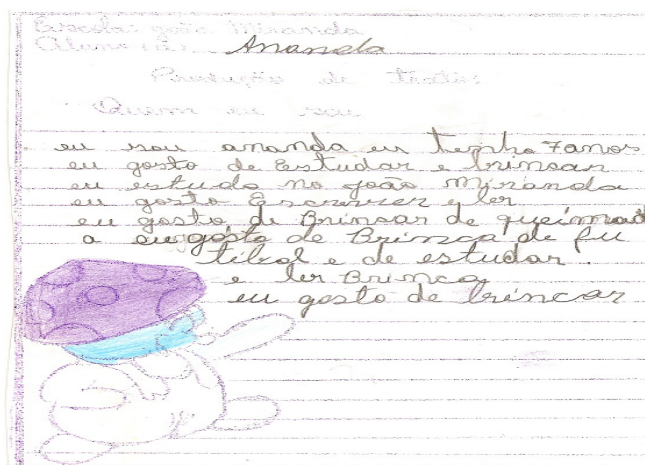 Escola: João Miranda
Aluno (a): Ananda
Produção de texto:
Quem eu sou
eu sou ananda eu tenho 7 anos
eu gosto de Estudar e brincar
eu estudo no João Miranda
eu gosto Escrever e ler
eu gosto de Brincar de queimad
a eu gosto de Brinca de fu
tibol e de estudar.
e ler Brinca
eu gosto de brincar